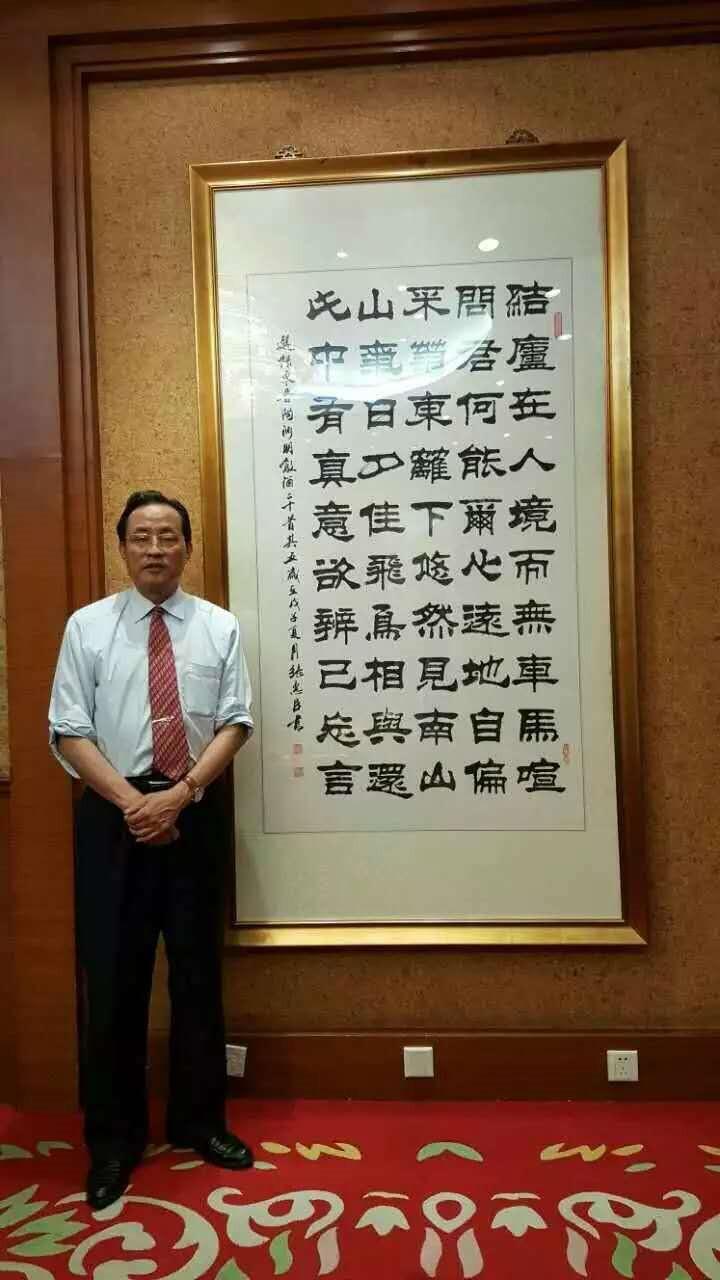 結廬在人境而無車馬喧
問君何能爾心遠地自偏
采菊東籬下悠然見南山
山氣日夕佳飛鳥相與還
此中有真意欲辨已忘言
選錄東晉陶淵明飲酒二十首其五歲在戊子夏月